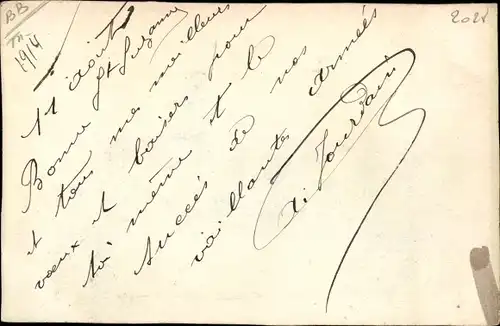 BB
1914
2021
11 août
Bonne Ste Suzanne
et tous mes meilleurs
vœux et baisers pour
toi même et le
succès de nos
vaillantes armées